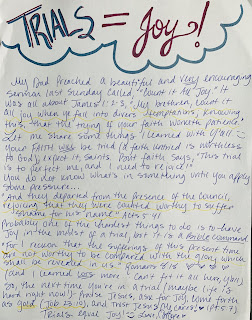 TRIALS = Joy!
My Dad preached a beautiful and very encouraging
sermon last Sunday called "Count it All Joy." It
was all about James 1:2-3, "My brethren, count it
all joy when ye fall into divers temptations; knowing
this, that the trying of your faith worketh patience."
Let me share some things I learned with y'all:
Your FAITH will be tried (a faith untried is worthless
to God), expect it, saints. Don't faith says, "This trial
is to perfect me, and I need to know it."
You do not know what's in something until you apply
some pressure...
"And they departed from the presence of the council,
rejoicing that they were counted worthy to suffer
shame for his name." Acts 5:41
Probably one of the hardest things to do is to have
Joy in the midst of a trial, but it is a Bible command.
"For I reckon that the sufferings of this present time
are not worthy to be compared with the glory which
shall be revealed in us." Romans 8:18
(and I learned lots more. Can't fit it all here, y'all)
So, the next time you're in a trial (maybe life is
hard right now) Praise Jesus, ask for Joy, come forth
as gold (Job 23:10), and trust Jesus. He cares!
Trials equal Joy!